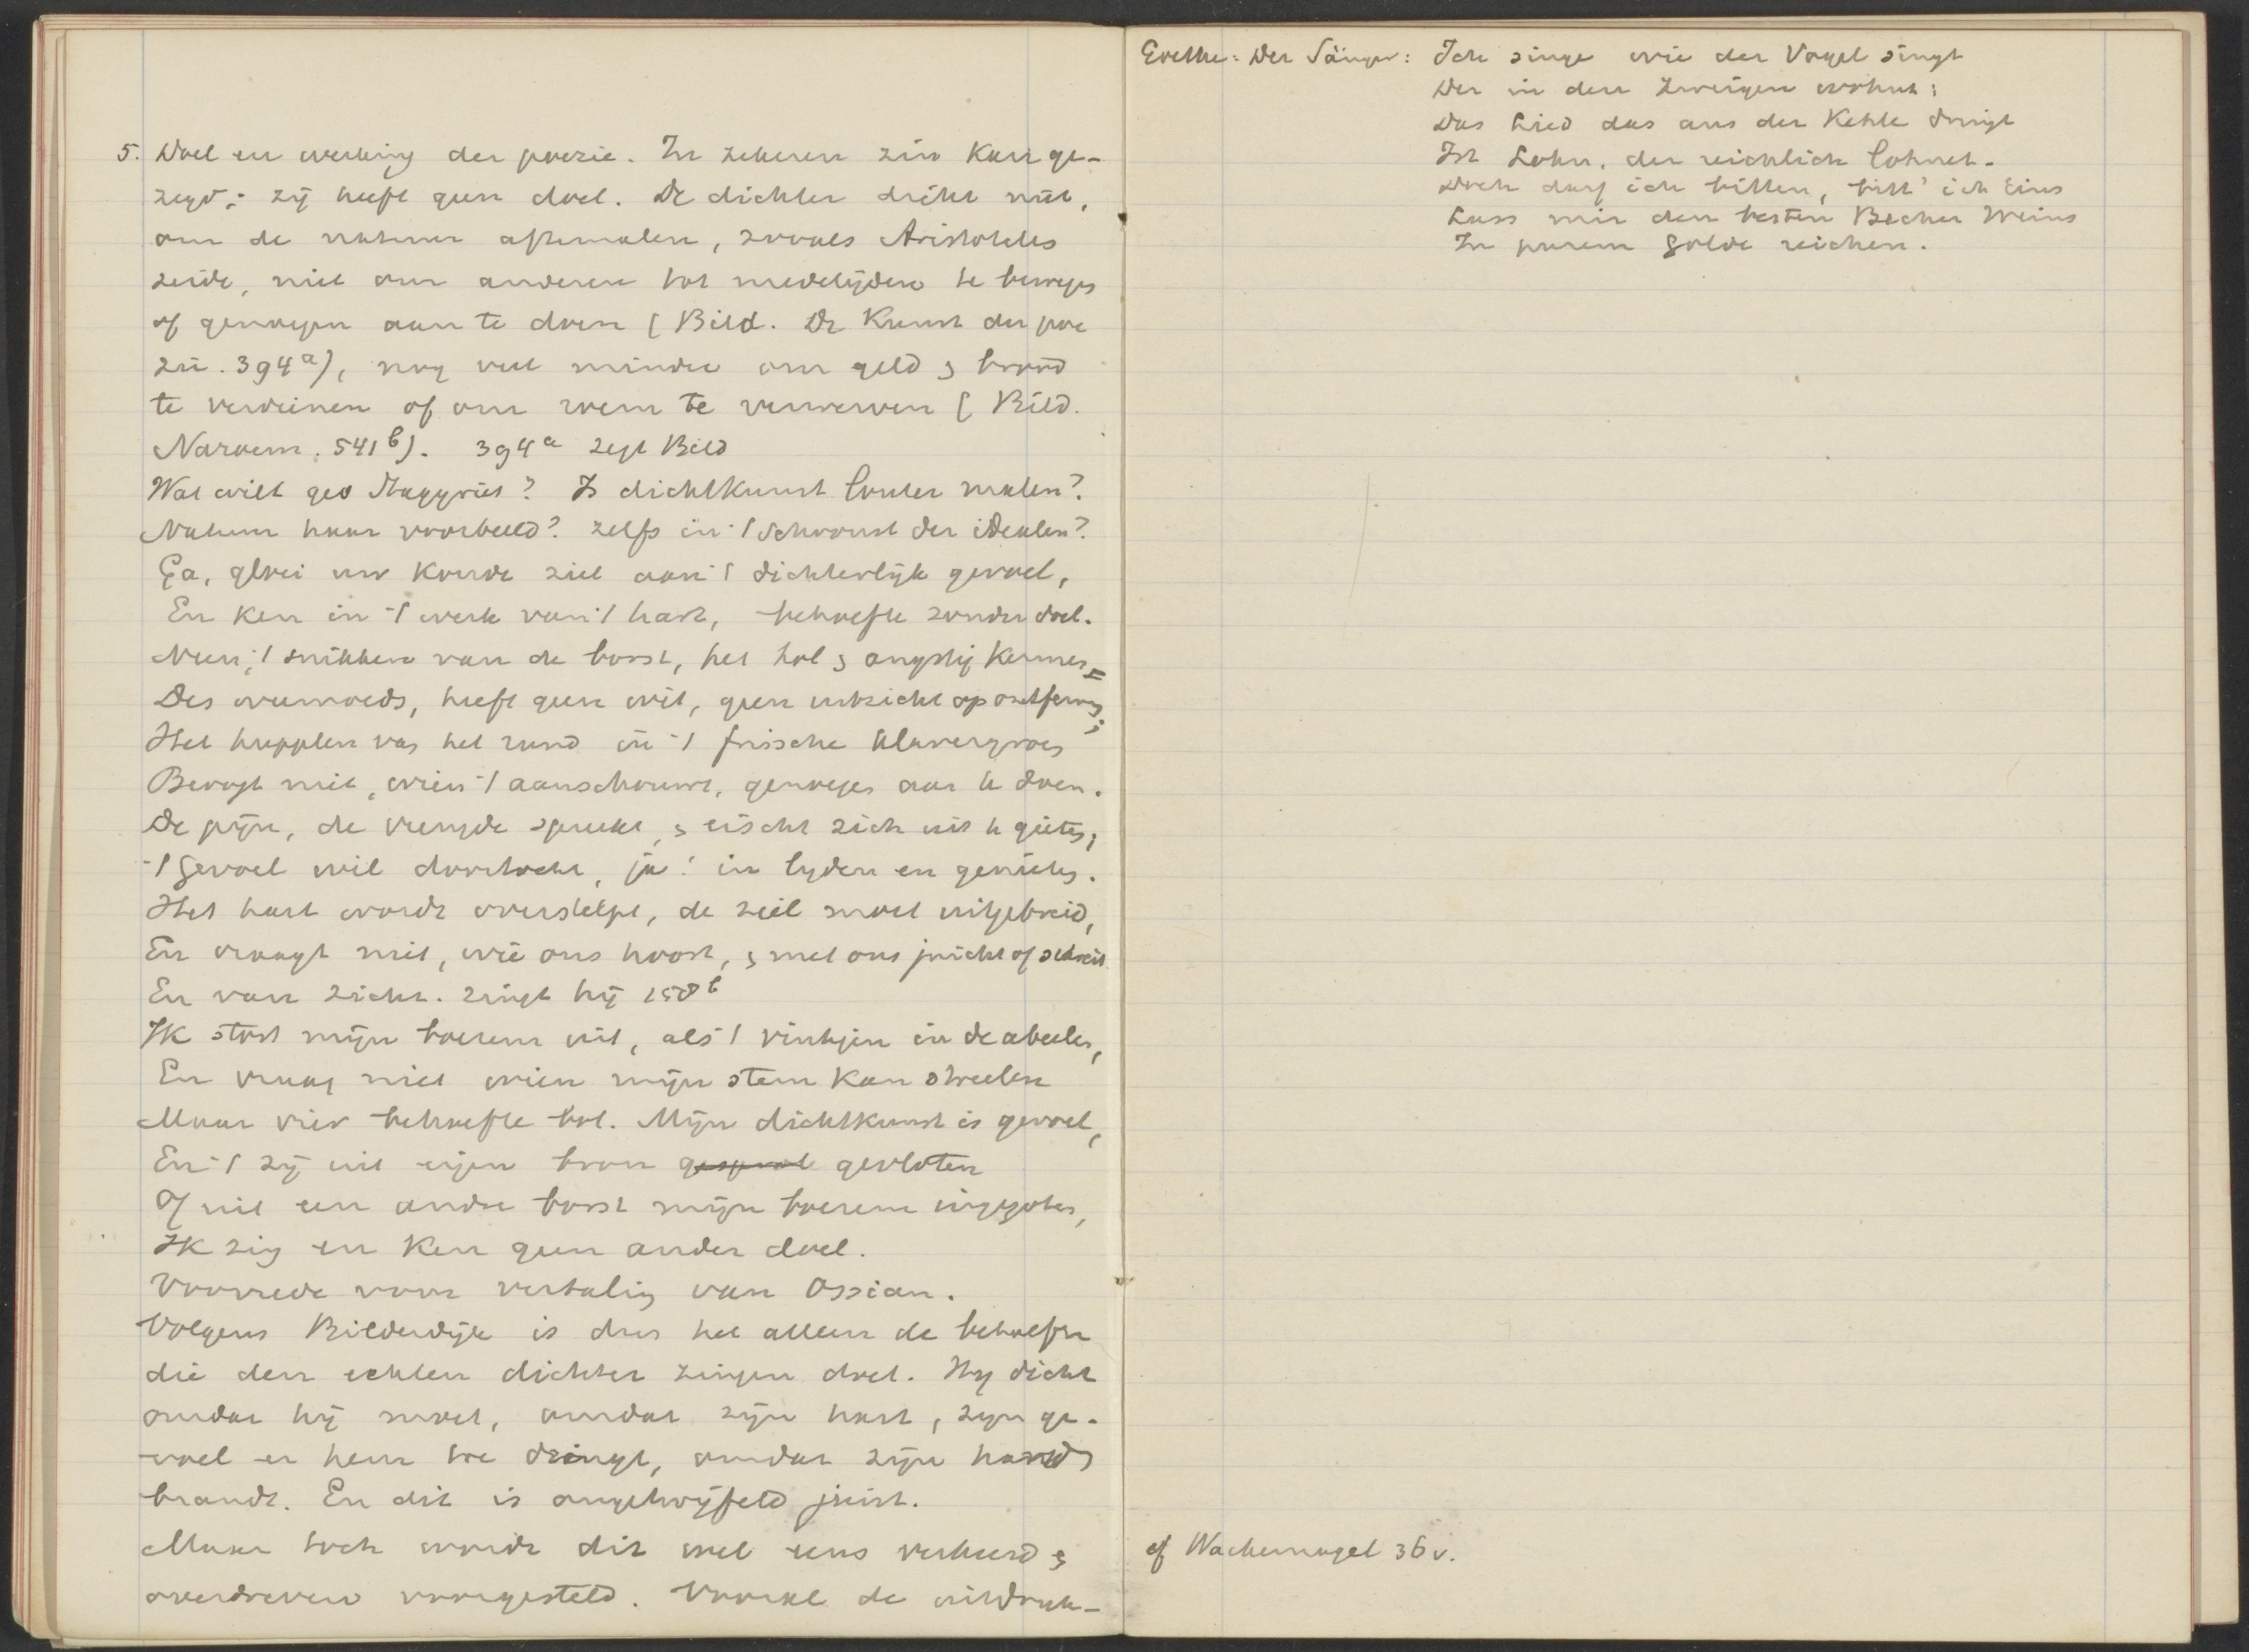 5. Doel en werking der poezie. In zekeren zin kan ge-
zegd: zij heeft geen doel. De dichter dicht niet,
om de natuur aftemalen, zooals Aristoteles
zeide, niet om anderen tot medelijden te bewegen
of genoegen aan te doen (Bild. De Kunst der poe
zie. 394a), nog veel minder om geld & brood
te verdienen of om roem te verwerven (Bild.
Naroem. 541b). 394a zegt Bild
Wat wilt ge o Stagyriet? Is dichtkunst louter malen?
Natuur haar voorbeeld? zelfs in 't schoonst der idealen?
Ga, gloei uw koude ziel aan 't dichterlijk gevoel,
En ken in 't werk van 't hart, behoefte zonder doel.
Neen, 't snikken van de borst, het hol & angstig kermen
Des weemoeds, heeft geen wit, geen uitzicht op ontfermen;
Het hupplen van het rund in 't frissche klavergroen
Beoogt niet, wien 't aanschouwt, genoegen aan te doen.
De pijn, de vreugde spreekt, & eischt zich uit te gieten;
't Gevoel wil doortocht, ja! in lyden en genieten.
Het hart wordt overstelpt, de ziel moet uitgebreid,
En vraagt niet, wie ons hoort, & met ons juicht of schreit.
En van zich. zingt hij 158b
Ik stort mijn boezem uit, als 't vinkjen in de abeelen,
En vraag niet wien mijn stem kan streelen
Maar vier behoefte bot. Mijn dichtkunst is gevoel,
En 't zij uit eigen bron gevloten
Of uit een andre borst mijn boezem ingegoten,
Ik zing en ken geen ander doel.
Voorrede voor vertaling van Ossian.
Volgens Bilderdijk is dus het alleen de behoefte
die den echten dichter zingen doet. Hy dicht
omdat hij moet, omdat zijn hart, zyn ge-
voel er hem toe dringt, omdat zijn
brandt. En dit is ongetwijfeld juist.
Maar toch wordt dit wel eens verkeerd &
overdreven voorgesteld. Vooral de uitdruk-
Goethe: Der Sänger: Ich singe wie der Vogel singt
Der in den Zweigen wohnet;
Das Lied das aus der Kehle dringt
Ist Lohn, der reichlich lohnet.
Doch darf ich bitten, bitt' ich Eins
Lass mir den besten Becher Weins
In purem Golde reichen.
cf Wackernagel 36 v.